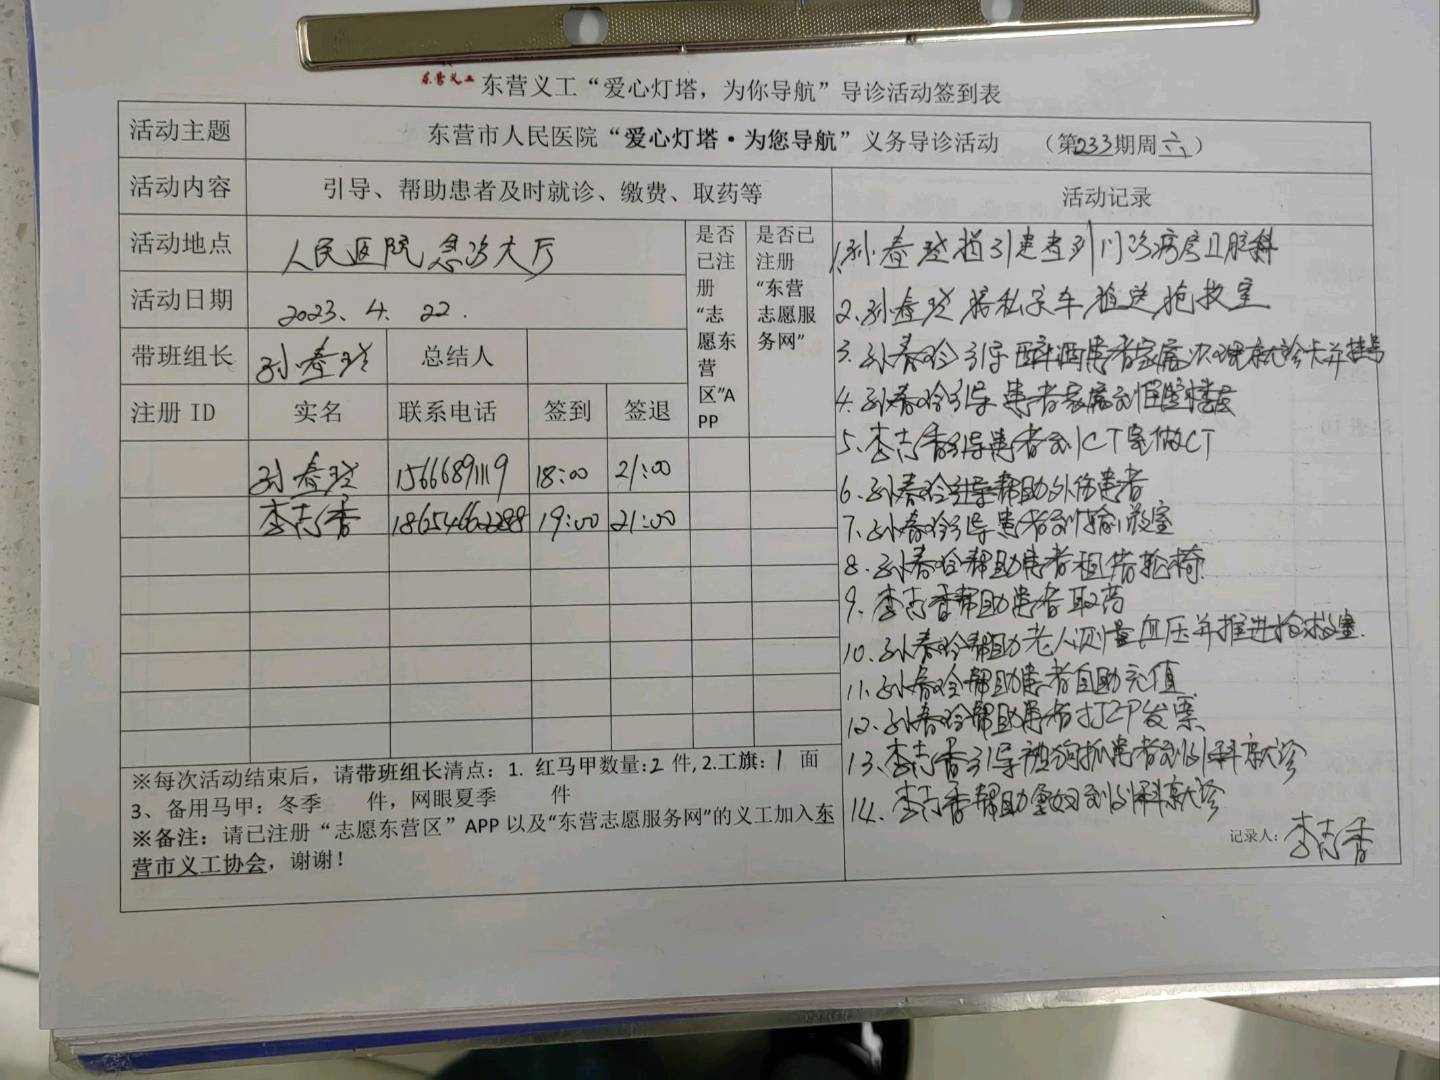 东营义工
东营义工“爱心灯塔，为你导航”导诊活动签到表
活动主题
东营市人民医院“爱心灯塔·为您导航”义务导诊活动 （第233期周六）
活动内容
引导、帮助患者及时就诊、缴费、取药等
活动记录
活动地点
人民医院急诊大厅
是否已注册“志愿东营区”APP
是否已注册“东营志愿服务网”
活动日期
2023.4.22.
带班组长
孙春玲
总结人
注册 ID 实名 联系电话 签到 签退
孙春玲 1566689119 18:00 21:00
李志香 18654662288 19:00 21:00
1.孙春玲指引患者到门诊病房口腔科
2.孙春玲将私家车推送抢救室
3.孙春玲引导醉酒患者家属办理就诊卡并挂号
4.孙春玲引导患者家属到
5.李志香引导患者到CT室做CT
6.孙春玲引导帮助外伤患者
7.孙春玲引导患者到输液室
8.孙春玲帮助患者租借轮椅
9.李志香帮助患者取药
10.孙春玲帮助老人测量血压并推进抢救室.
11.孙春玲帮助患者自助充值
12.孙春玲帮助患者打印发票
13.李志香引导被狗抓患者到外科就诊
14.李志香帮助到外科就诊
记录人：李志香
※每次活动结束后，请带班组长清点：1. 红马甲数量：2 件，2.工旗：1 面
3、备用马甲：冬季 件，网眼夏季 件
※备注：请已注册“志愿东营区”APP 以及“东营志愿服务网”的义工加入东
营市义工协会，谢谢！